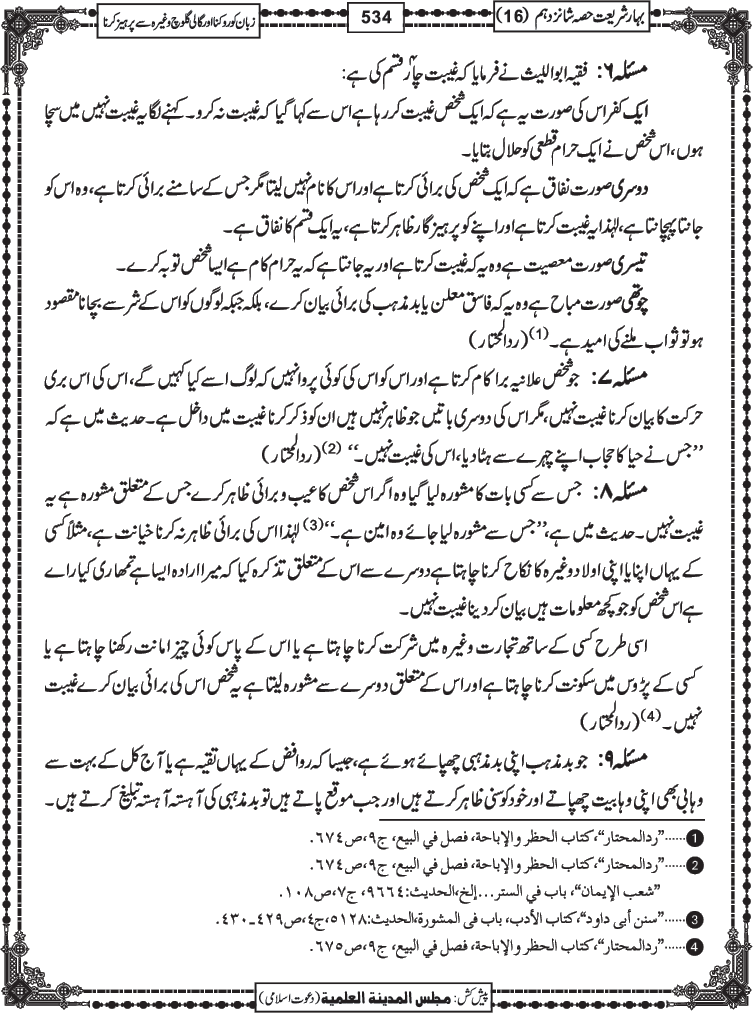 بہار شریعت حصہ شانزدہم (16)
534
زبان کو روکنا اور گالی گلوچ وغیرہ سے پرہیز کرنا
مسئلہ ۶: فقیہ ابو اللیث نے فرمایا کہ غیبت چار قسم کی ہے:
ایک کفر اس کی صورت یہ ہے کہ ایک شخص غیبت کر رہا ہے اس سے کہا گیا کہ غیبت نہ کرو۔ کہنے لگا یہ غیبت نہیں میں سچا
ہوں، اس شخص نے ایک حرام قطعی کو حلال بتایا۔
دوسری صورت نفاق ہے کہ ایک شخص کی برائی کرتا ہے اور اس کا نام نہیں لیتا مگر جس کے سامنے برائی کرتا ہے، وہ اس کو
جانتا پہچانتا ہے، لہٰذا یہ غیبت کرتا ہے اور اپنے کو پرہیزگار ظاہر کرتا ہے، یہ ایک قسم کا نفاق ہے۔
تیسری صورت معصیت ہے وہ یہ کہ غیبت کرتا ہے اور یہ جانتا ہے کہ یہ حرام کام ہے ایسا شخص توبہ کرے۔
چوتھی صورت مباح ہے وہ یہ کہ فاسق معلن یا بد مذہب کی برائی بیان کرے، بلکہ جبکہ لوگوں کو اس کے شر سے بچانا مقصود
ہو تو ثواب ملنے کی امید ہے۔(1) (ردالمحتار)
مسئلہ ۷: جو شخص علانیہ برا کام کرتا ہے اور اس کو اس کی کوئی پروا نہیں کہ لوگ اسے کیا کہیں گے، اس کی اس بری
حرکت کا بیان کرنا غیبت نہیں، مگر اس کی دوسری باتیں جو ظاہر نہیں ہیں ان کو ذکر کرنا غیبت میں داخل ہے۔ حدیث میں ہے کہ
’’جس نے حیا کا حجاب اپنے چہرے سے ہٹا دیا، اس کی غیبت نہیں۔‘‘ (2) (ردالمحتار)
مسئلہ ۸: جس سے کسی بات کا مشورہ لیا گیا وہ اگر اس شخص کا عیب و برائی ظاہر کرے جس کے متعلق مشورہ ہے یہ
غیبت نہیں۔ حدیث میں ہے، ’’جس سے مشورہ لیا جائے وہ امین ہے۔‘‘(3) لہٰذا اس کی برائی ظاہر نہ کرنا خیانت ہے، مثلاً کسی
کے یہاں اپنا یا اپنی اولاد وغیرہ کا نکاح کرنا چاہتا ہے دوسرے سے اس کے متعلق تذکرہ کیا کہ میرا ارادہ ایسا ہے تمھاری کیا رائے
ہے اس شخص کو جو کچھ معلومات ہیں بیان کر دینا غیبت نہیں۔
اسی طرح کسی کے ساتھ تجارت وغیرہ میں شرکت کرنا چاہتا ہے یا اس کے پاس کوئی چیز امانت رکھنا چاہتا ہے یا
کسی کے پڑوس میں سکونت کرنا چاہتا ہے اور اس کے متعلق دوسرے سے مشورہ لیتا ہے یہ شخص اس کی برائی بیان کرے غیبت
نہیں۔(4) (ردالمحتار)
مسئلہ ۹: جو بد مذہب اپنی بد مذہبی چھپائے ہوئے ہے، جیسا کہ روافض کے یہاں تقیہ ہے یا آج کل کے بہت سے
وہابی بھی اپنی وہابیت چھپاتے اور خود کو سنی ظاہر کرتے ہیں اور جب موقع پاتے ہیں تو بد مذہبی کی آہستہ آہستہ تبلیغ کرتے ہیں۔
1 ......”ردالمحتار“، کتاب الحظر والإباحة، فصل في البيع، ج۹، ص۶۷۴.
2 ......”ردالمحتار“، کتاب الحظر والإباحة، فصل في البيع، ج۹، ص۶۷۴.
”شعب الإيمان“، باب في الستر...إلخ، الحديث:۹۶۶۴، ج۷، ص۱۰۸.
3 ......”سنن أبی داود“، کتاب الأدب، باب فی المشورة، الحديث:۵۱۲۸، ج۴، ص۴۲۹ـ۴۳۰.
4 ......”ردالمحتار“، کتاب الحظر والإباحة، فصل في البيع، ج۹، ص۶۷۵.
پیش کش: مجلس المدينة العلمية (دعوت اسلامی)